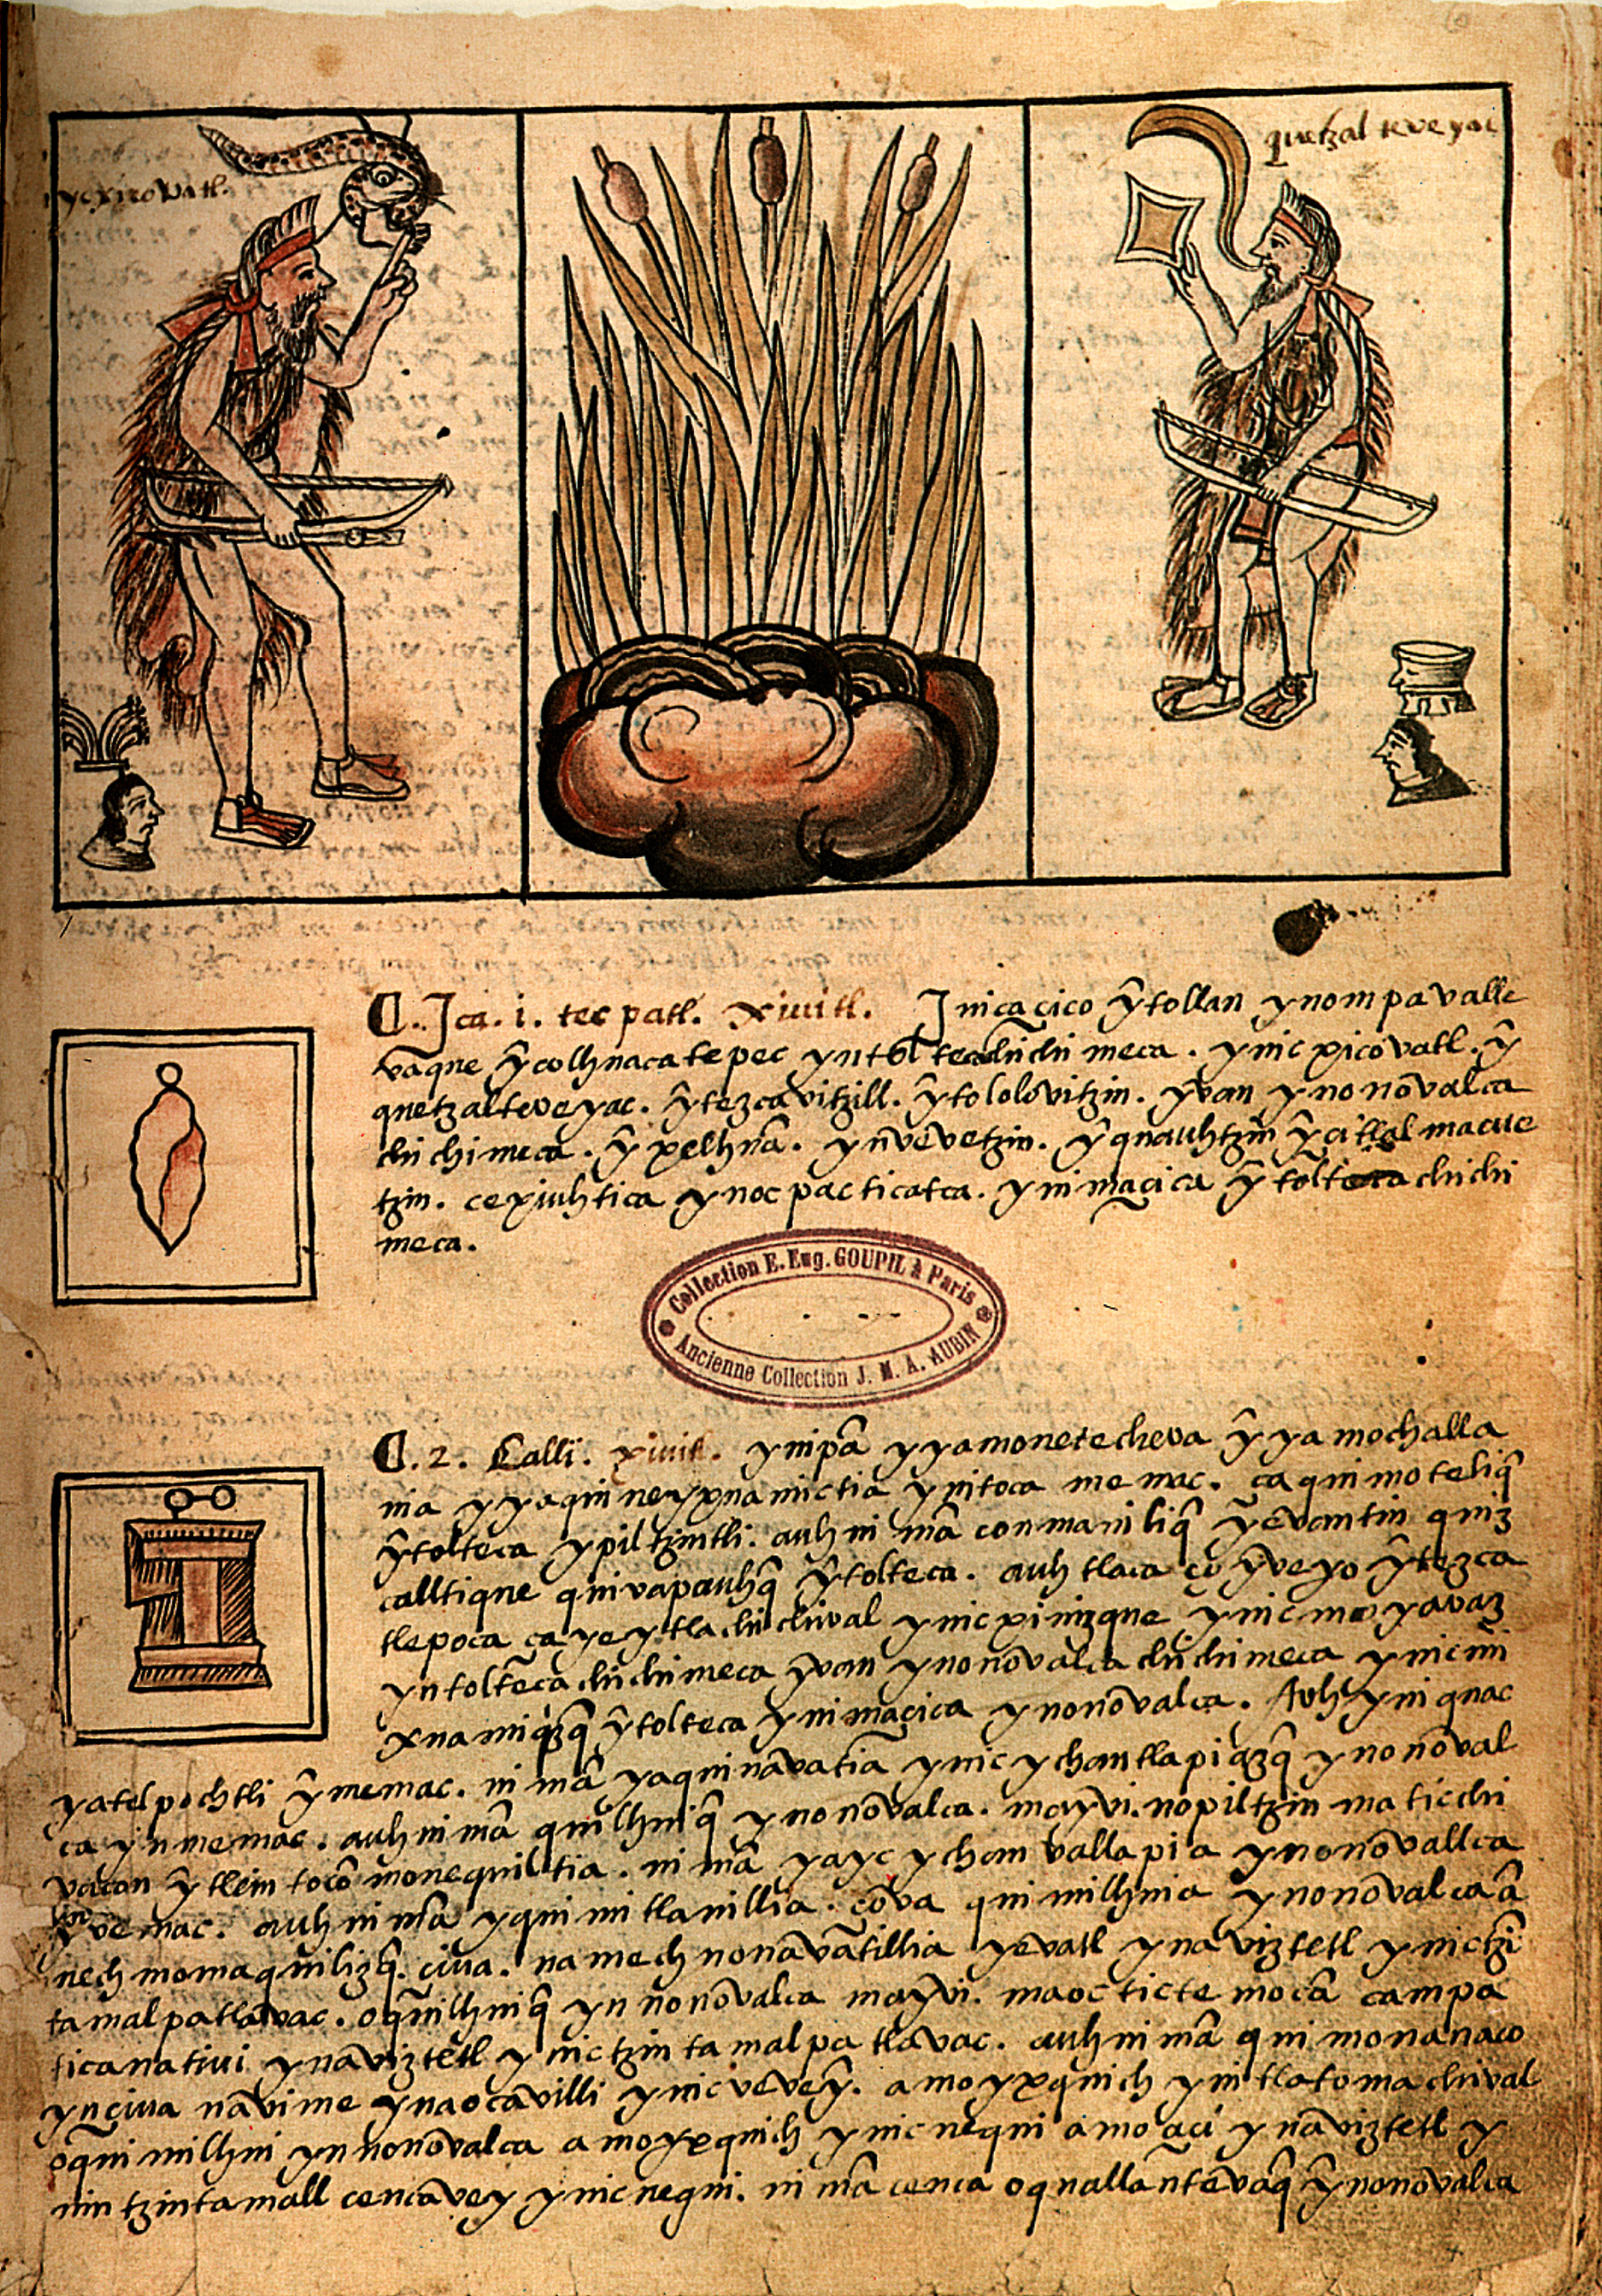 ycxicovatl.
quetzal teveyac
C. Ica. i. tecpatl. xivitl. Inic acico ŷtollan ynompa valle
vaque ŷcolhuacatepec yntoltecachichimeca. ynicxicovatl. ŷ
quetzalteveyac. ŷtezcavitzill. ŷtololovitzin. yvan ynonōvalca
chichimeca. ŷxelhuā. ynvēvetzin. ŷquauhtzin ŷcitlalmacue
tzin. cexiuhtica ynocpacticatca. ynimacica ŷtoltecachichi
meca.
Collection E. Eug. GOUPIL à Paris
Ancienne Collection J. M. A. AUBIN
C. 2. Calli. xivitl. ynipā yyamonetecheva ŷyamochalla
nia yyaquineyxnamictia ynitoca memac. caquimoteliq̄
ŷtolteca ypiltzintli. auh nimā conmaniliq̄ yēvantin quiz
calltique quivapauhq̄ ŷtolteca. auh tlaca ço ŷveyo ŷtezca
tlepoca ça yeytlachichival ynicpinizque ynicmoyavaz
yntoltecachichimeca yvan ynonōvalca chichimeca ynicmi
xnamiq̄zq̄ ŷtolteca ynimacica ynonōvalca. Auh yniquac
yatelpochtli ŷmemac. nimā yaquināvatia ynicychantlapiq̄zq̄ ynonōval
ca yn memac. auh nimā quilhuiq̄ ynonōvalca. mayvi. nopiltzin maticchi
vacan ŷtlein tocō monequiltia. nimā yayc ychan vallapia ynonōvallca
yvemac. auh nimā yquimitlanillia. çōva quimilhuia ynonōvalca ā
nechmomaquilizq̄. çiua. namechnonāvatillia yēvatl ynaviztetl ynictzī
tamalpatlavac. oq̄uilhuiq̄ yn nonōvalca mayvi. maoc ticte mocā campa
ticanativi ynāviztetl ynictzintamalpatlavac. auh nimā quimonanaco
ynçiua nāvime ynaocāvilli ynicvevey. amoyxquich yn tlatomachival
oq̄uimilhui yn nonōvalca amoyxquich ynicnequi amo aci ynāviztetl y
nin tzintamall cencavey ynicnequi. nimā cenca oquallāntēvaq̄ ŷnonōvalca